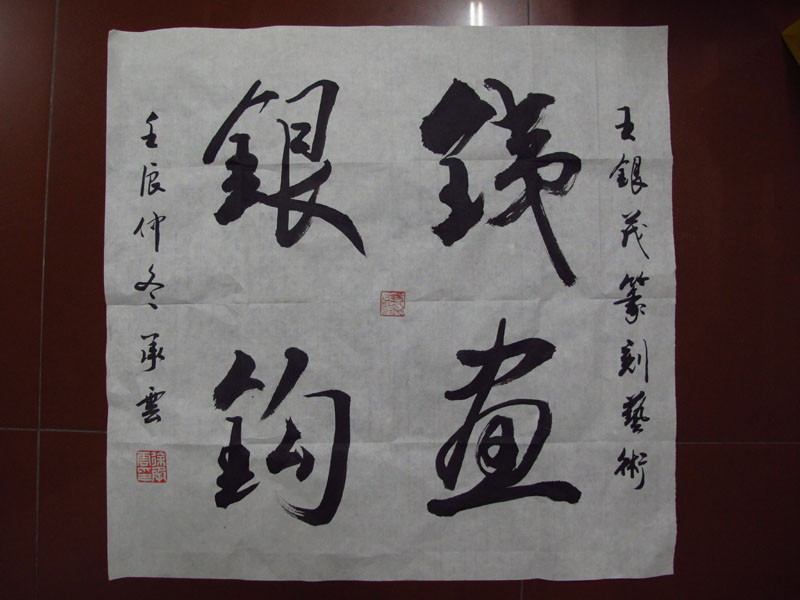 王銀茂篆刻藝術
銕畫
銀鈎
壬辰仲冬承雲